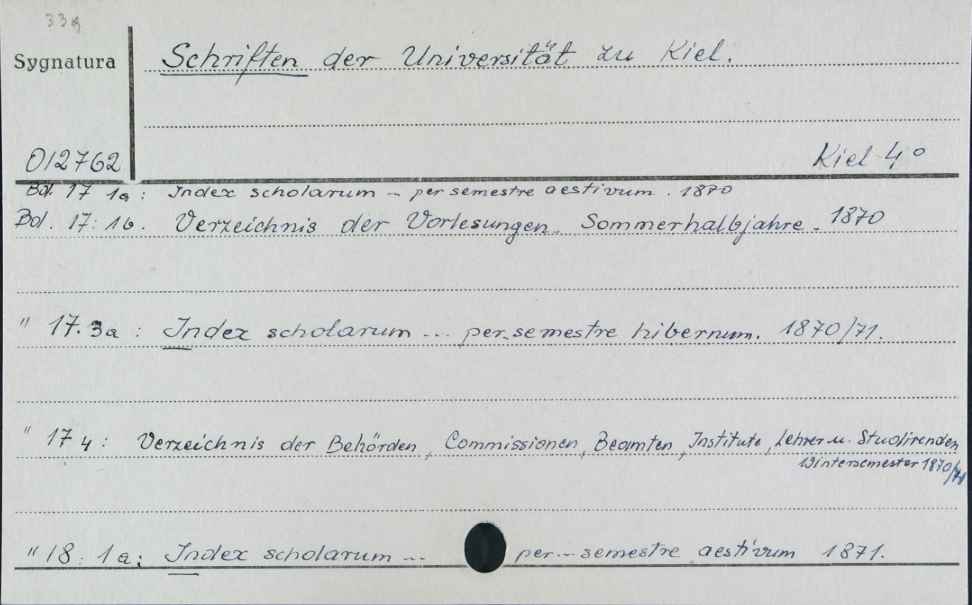 339
Sygnatura
Schriften der Universität zu Kiel.
012762
Kiel 4°
Bd. 17 1a: Index scholarum - per semestre aestivum. 1870
Bd. 17: 1b. Verzeichnis der Vorlesungen. Sommerhalbjahre. 1870
" 17.3a: Index scholarum ... per semestre hibernum. 1870/71.
" 17 4: Verzeichnis der Behörden, Commissionen, Beamten, Institute, Lehrer u. Studirenden
Wintersemester 1870/71
" 18: 1a: Index scholarum ... per ... semestre aestivum 1871.